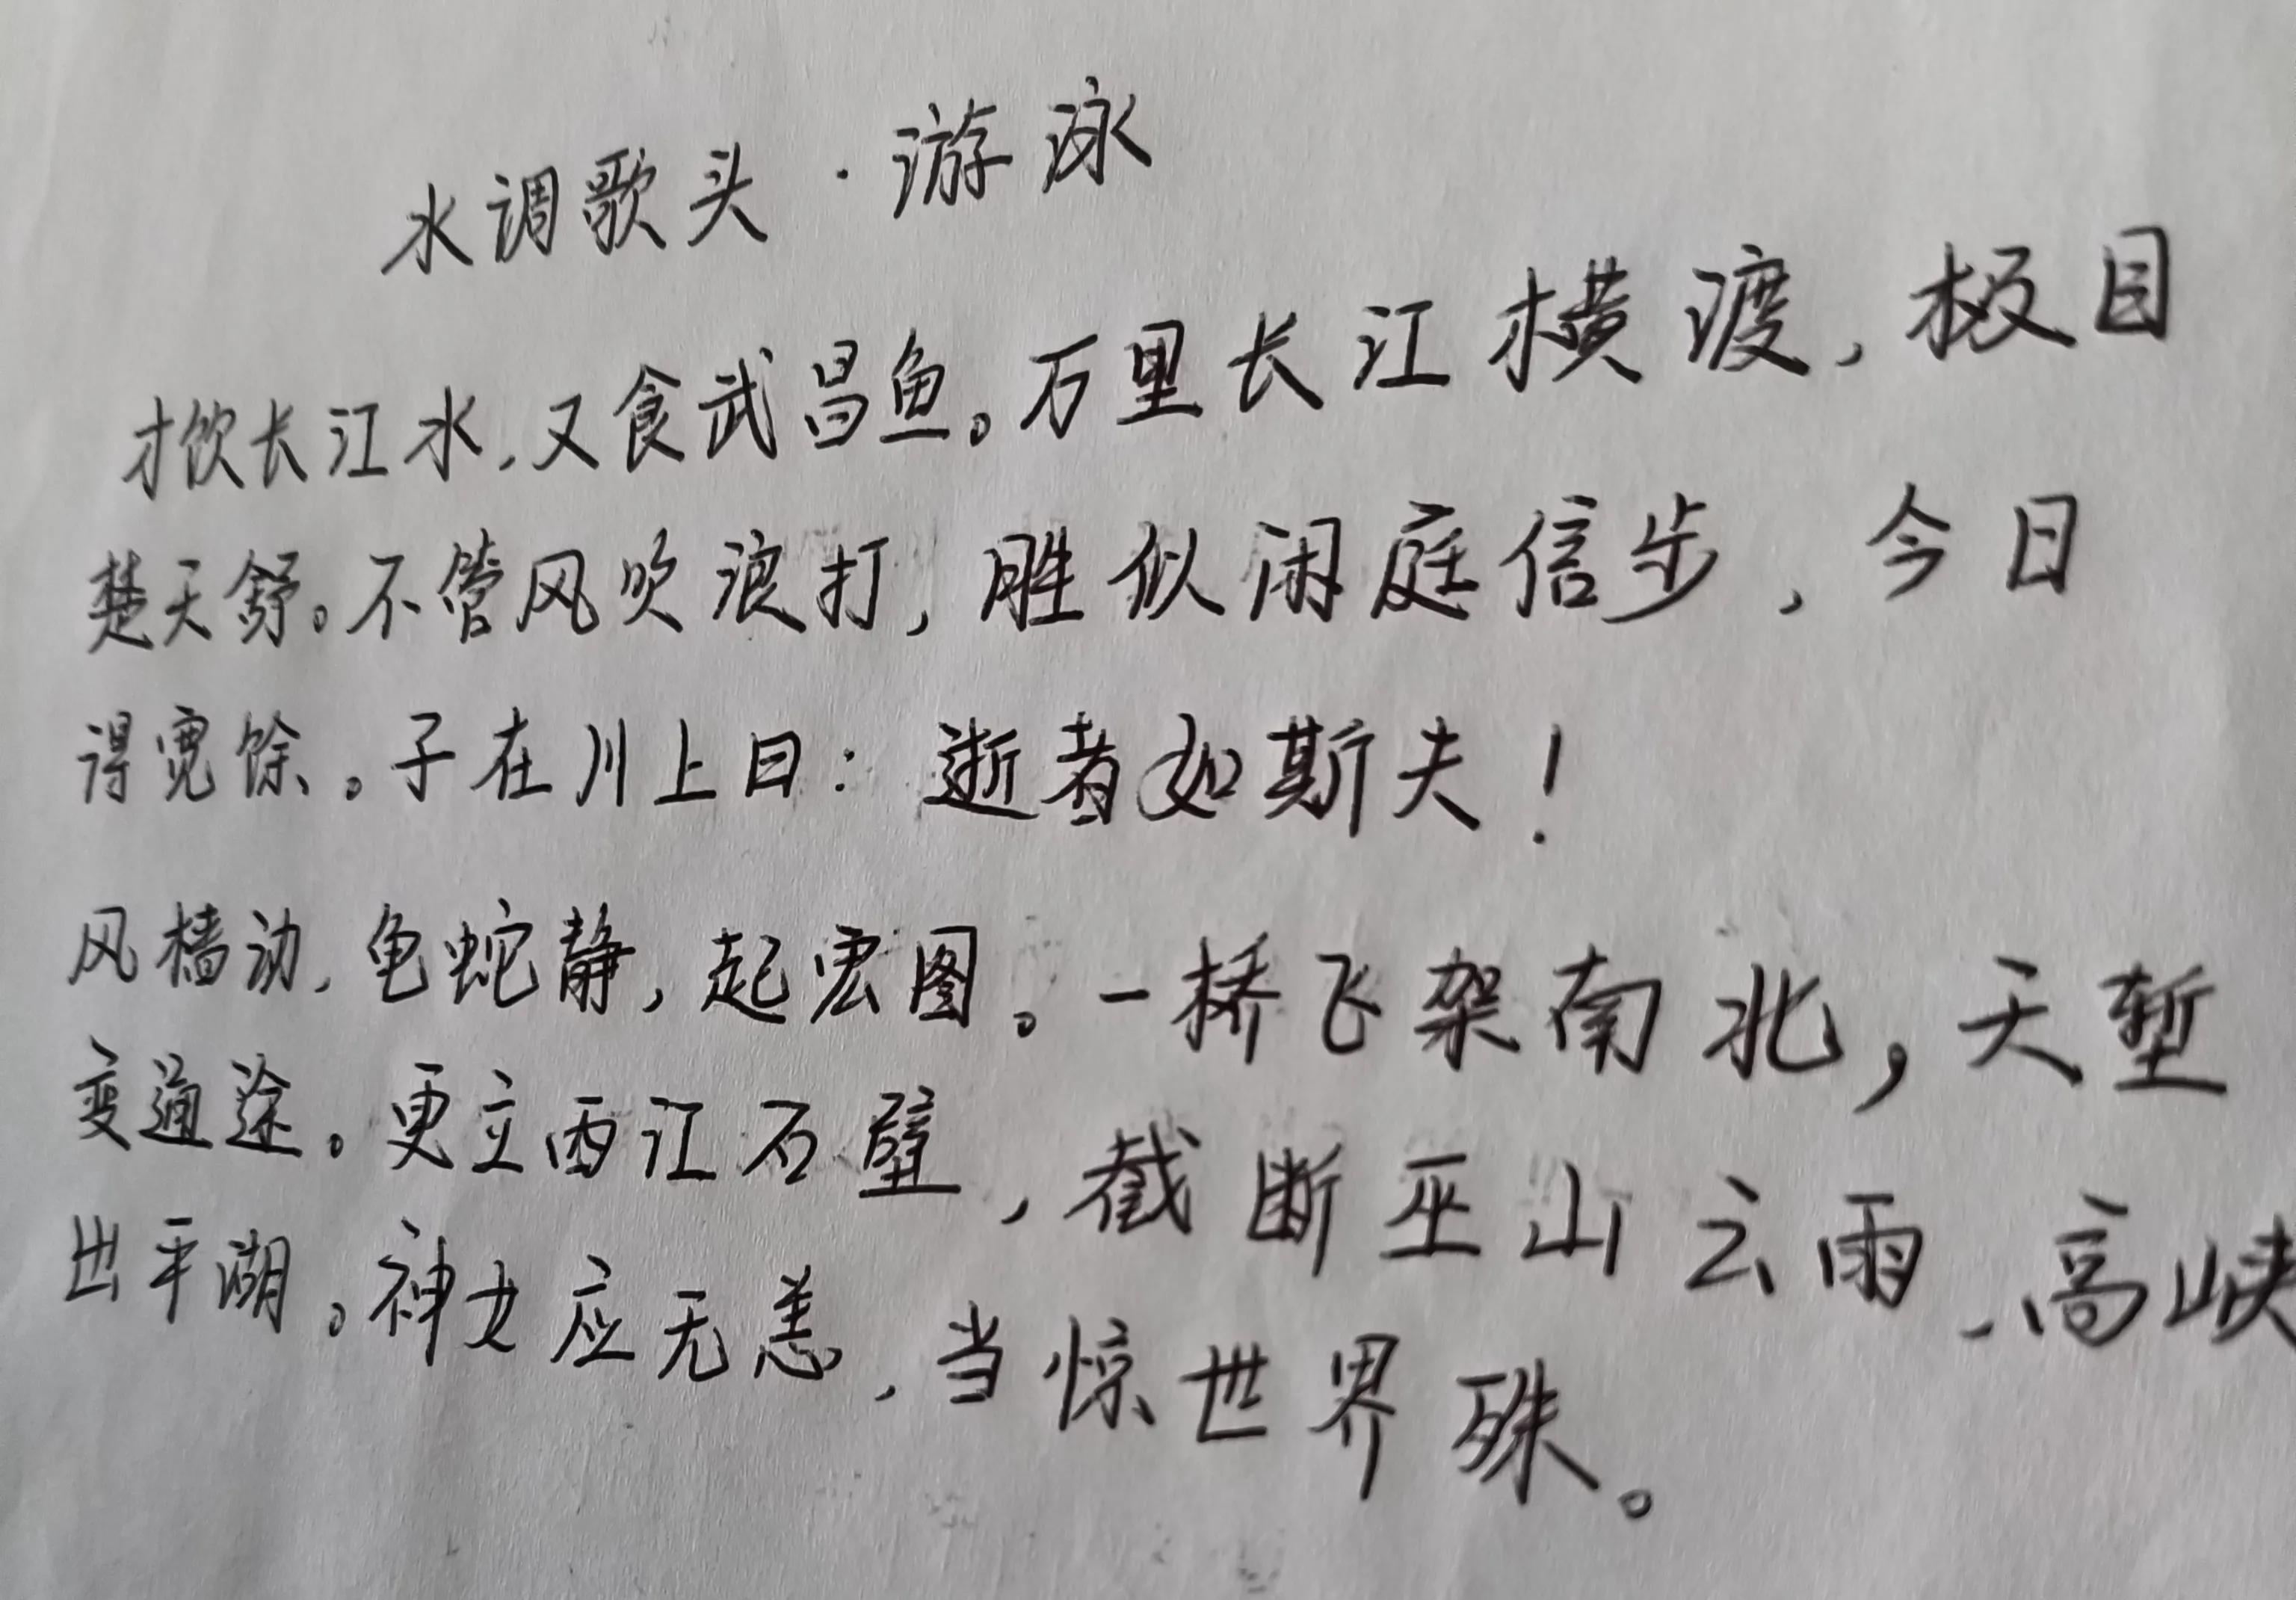 水调歌头·游泳
才饮长江水,又食武昌鱼。万里长江横渡,极目
楚天舒。不管风吹浪打,胜似闲庭信步,今日
得宽馀。子在川上曰:逝者如斯夫!
风樯动,龟蛇静,起宏图。一桥飞架南北,天堑
变通途。更立西江石壁,截断巫山云雨,高峡
出平湖。神女应无恙,当惊世界殊。